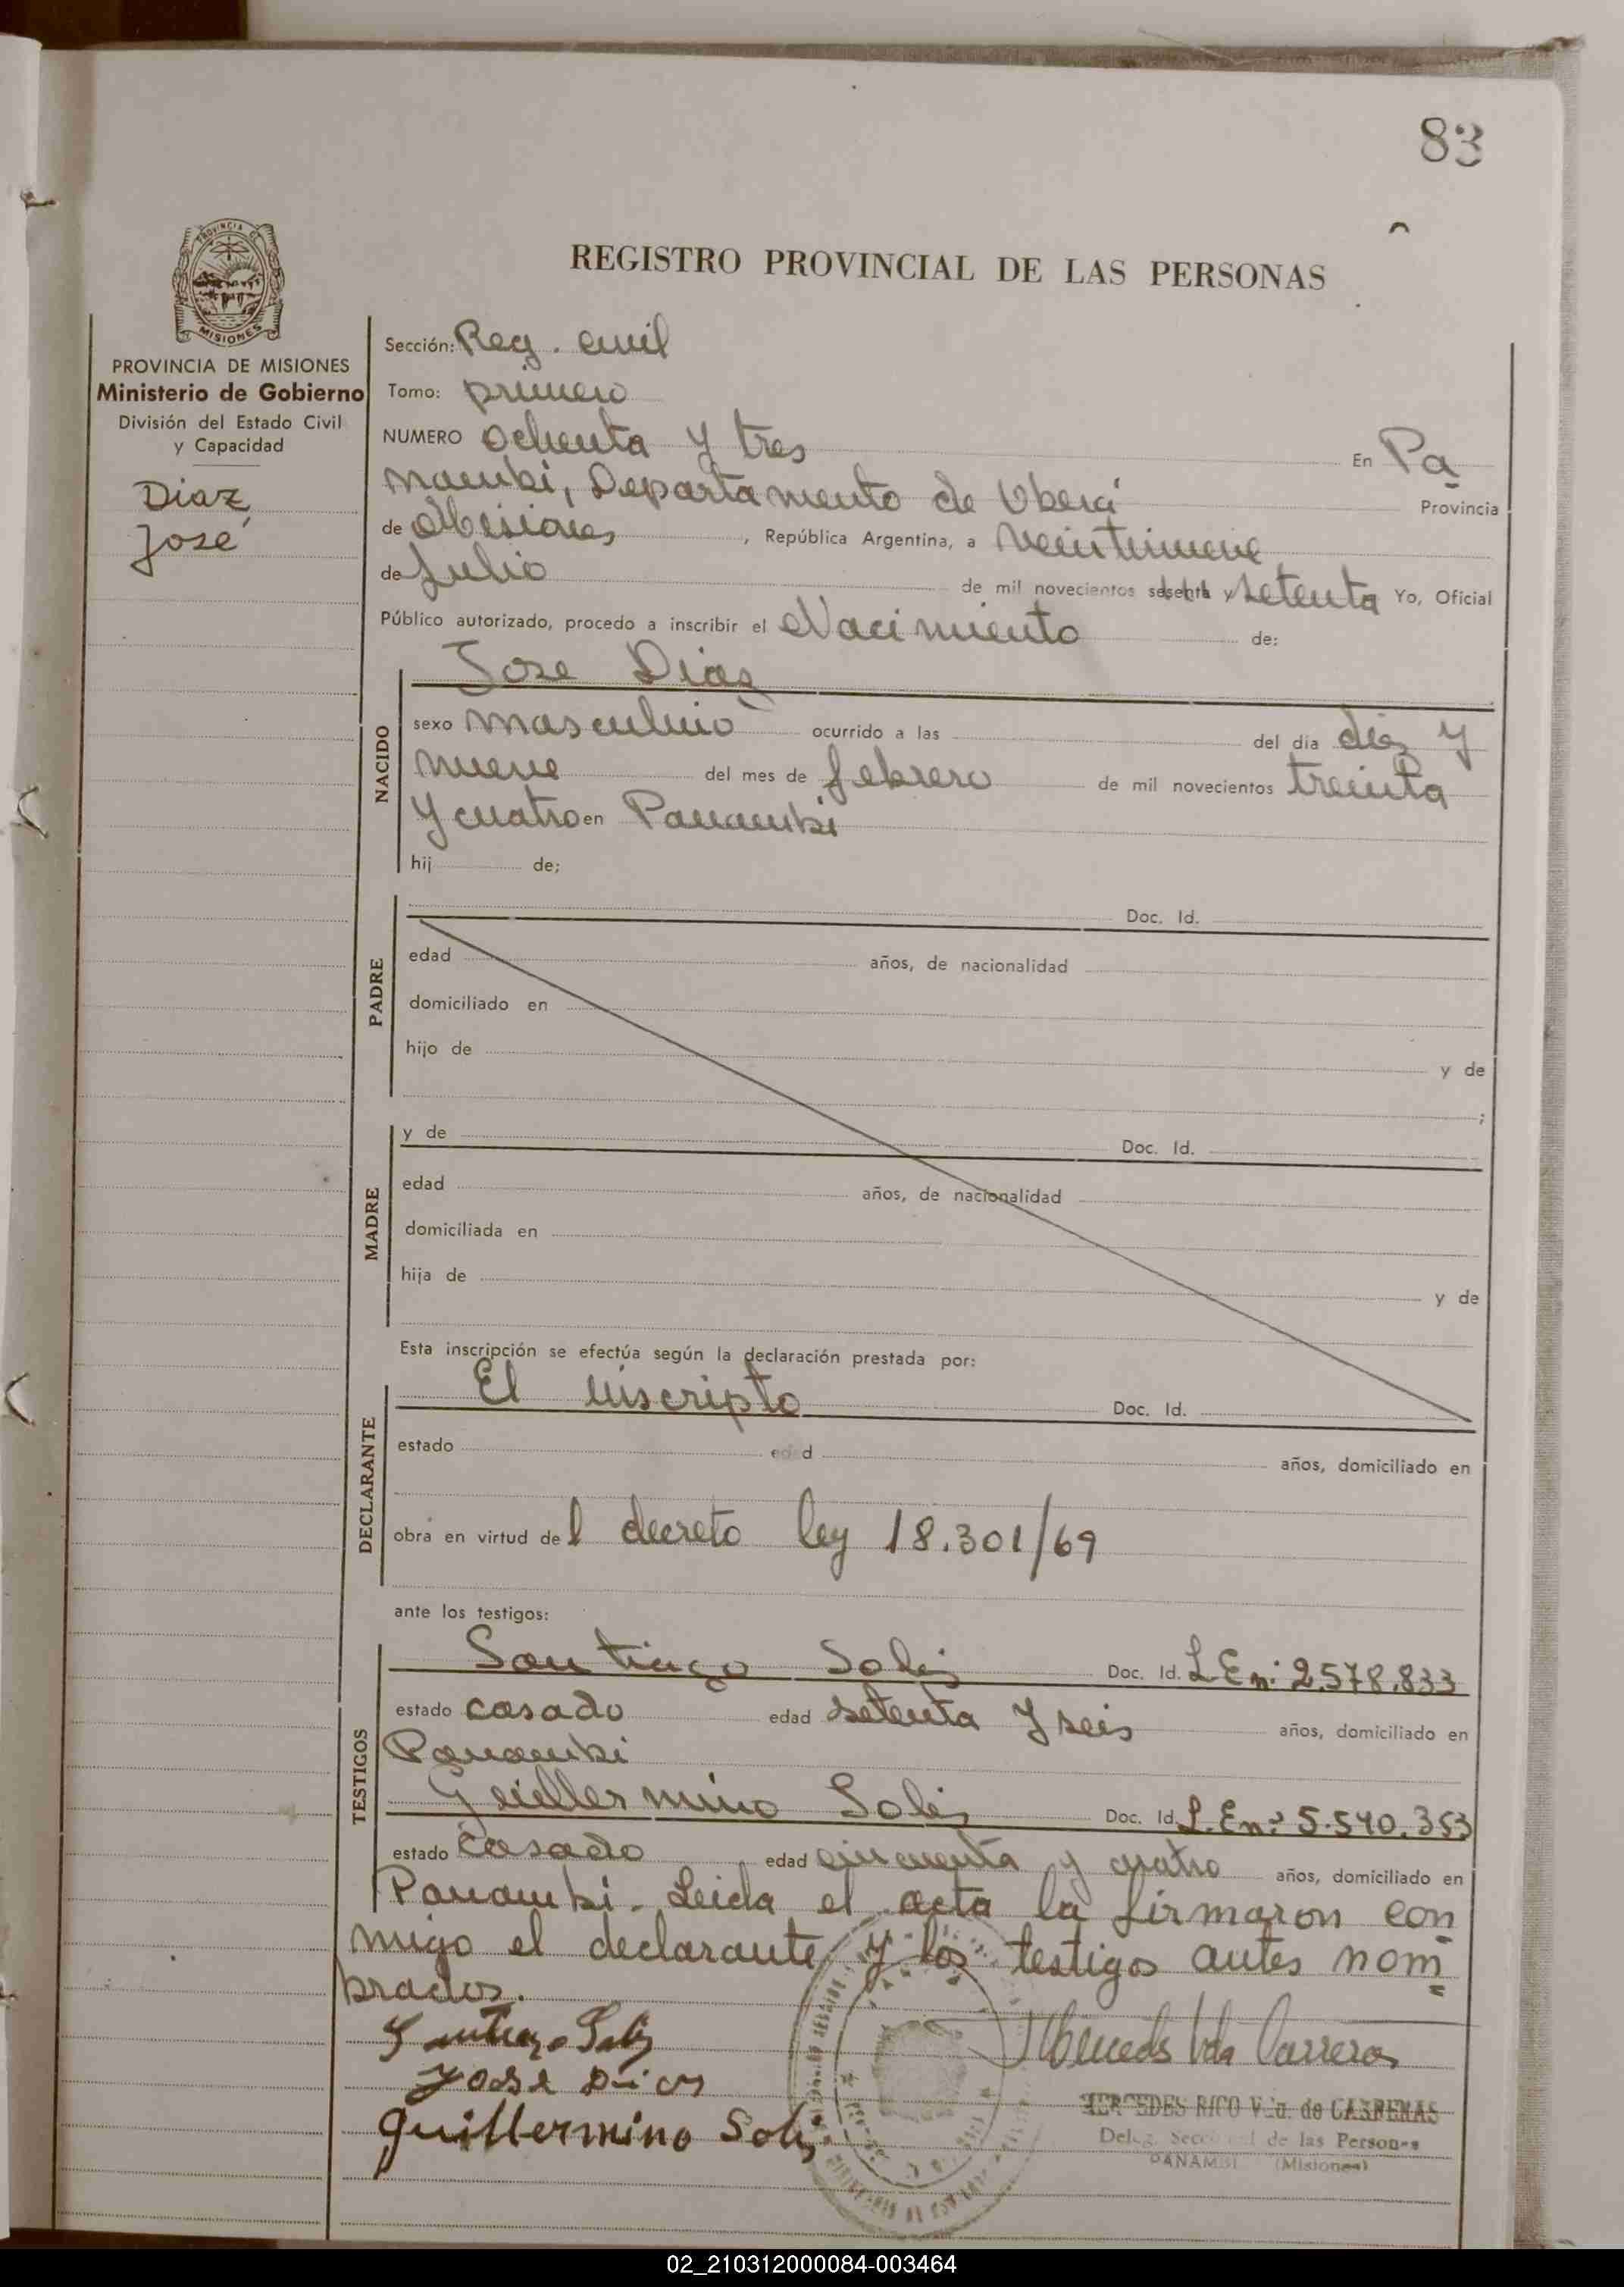 83
PROVINCIA DE
MISIONES
PROVINCIA DE MISIONES
Ministerio de Gobierno
División del Estado Civil
y Capacidad
Diaz,
José
REGISTRO PROVINCIAL DE LAS PERSONAS
Sección: Reg. civil
Tomo: primero
NUMERO ochenta y tres En Pa
nambi, Departamento de Oberá Provincia
de Misiones, República Argentina, a veintinueve
de Julio de mil novecientos sesenta y setenta Yo, Oficial
Público autorizado, procedo a inscribir el Nacimiento de:
Jose Diaz
NACIDO
sexo masculino ocurrido a las del día diez y
nueve del mes de febrero de mil novecientos treinta
y cuatro en Panambi
hij de;
PADRE
Doc. Id.
edad años, de nacionalidad
domiciliado en
hijo de y de
;
MADRE
y de Doc. Id.
edad años, de nacionalidad
domiciliada en
hija de y de
Esta inscripción se efectúa según la declaración prestada por:
DECLARANTE
El inscripto Doc. Id.
estado edad años, domiciliado en
obra en virtud del decreto ley 18.301/69
ante los testigos:
TESTIGOS
Santiago Solis Doc. Id. L.E nº 2.578.833
estado casado edad setenta y seis años, domiciliado en
Panambi
Guillermino Solis Doc. Id. L.E nº 5.540.353
estado casado edad cincuenta y cuatro años, domiciliado en
Panambi. Leida el acta la firmaron con
migo el declarante y los testigos antes nom
brados.
Santiago Solis
Jose Dias
Guillermino Solis
Mercedes Vda Carreras
MERCEDES RICO Vda. de CARRERAS
Deleg. Seccional de las Personas
PANAMBI (Misiones)
02_210312000084-003464